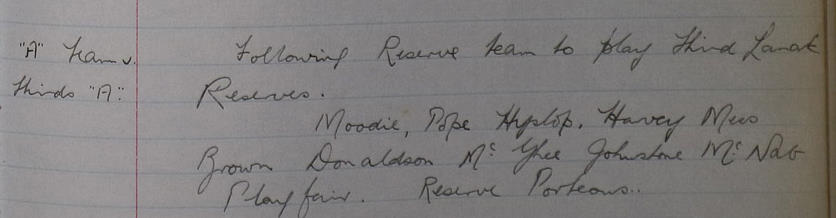 "A" Team v.
thirds "A".
Following Reserve team to play Third Lanark
Reserves.
Moodie, Pope Hyslop. Harvey
Brown Donaldson Mc Ghee Johnstone Mc Nab
Playfair. Reserve Porteous..